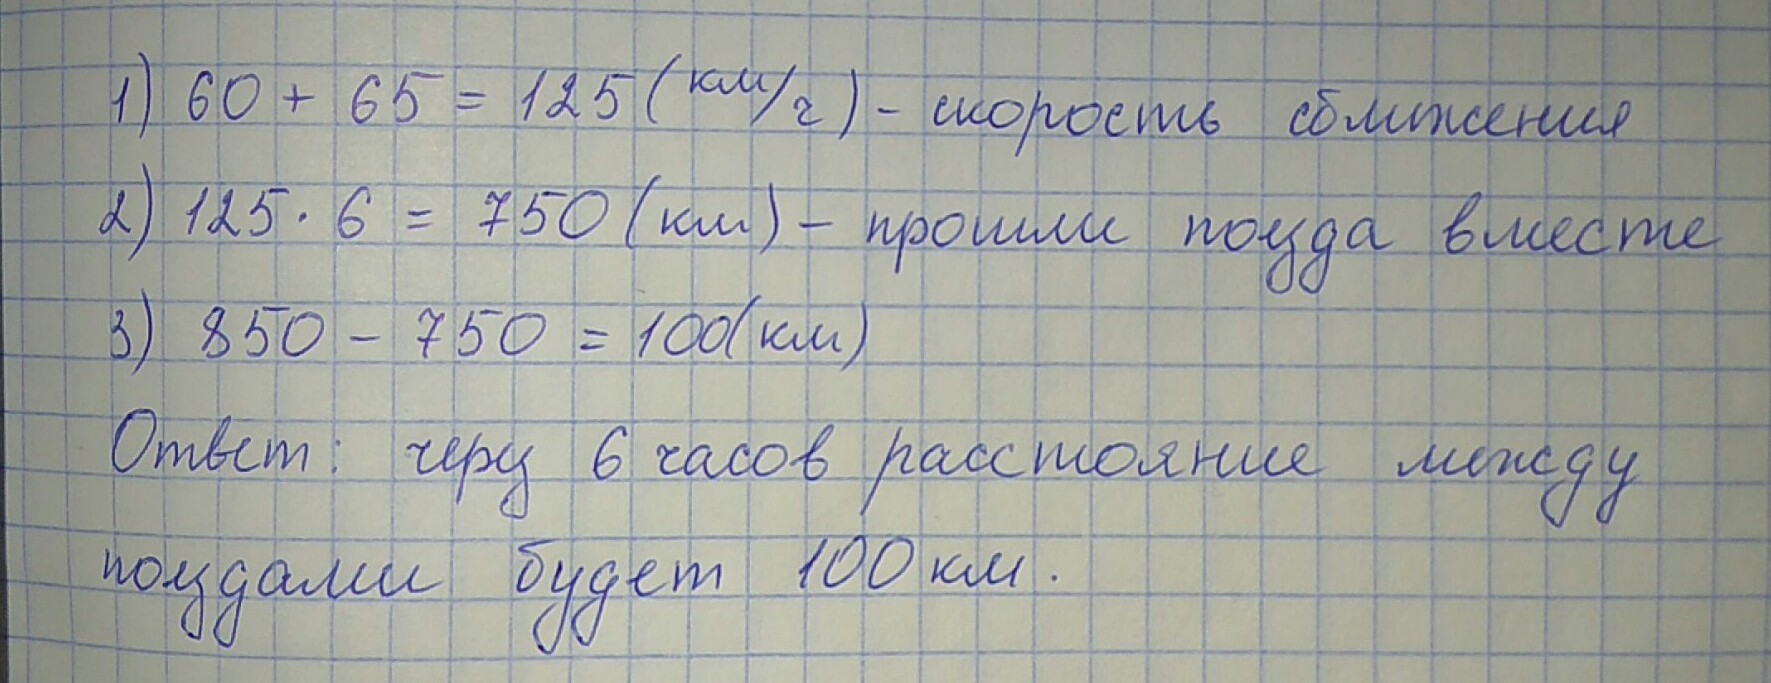 1) 60 + 65 = 125 (км/ч) - скорость сближения
2) 125 · 6 = 750 (км) - прошли поезда вместе
3) 850 - 750 = 100 (км)
Ответ: через 6 часов расстояние между
поездами будет 100 км.